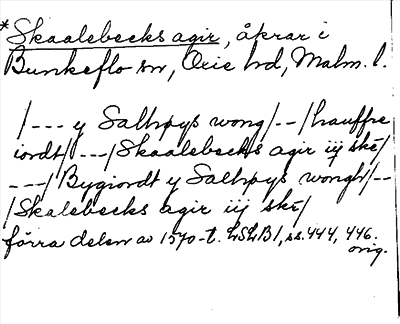 *Skaalebecks agir, åkrar i
Bunkeflo sn, Oxie hd, Malm. l.
/--- y Salhøys wong/--/hauffre
iordt/---/Skaalebecks agir iij ske/
---/Bygiordt y Salhøys wongh/--
/Skalebecks agir iij ske/
förra delen av 1570-t. LSLB1, ss. 444, 446.
orig.